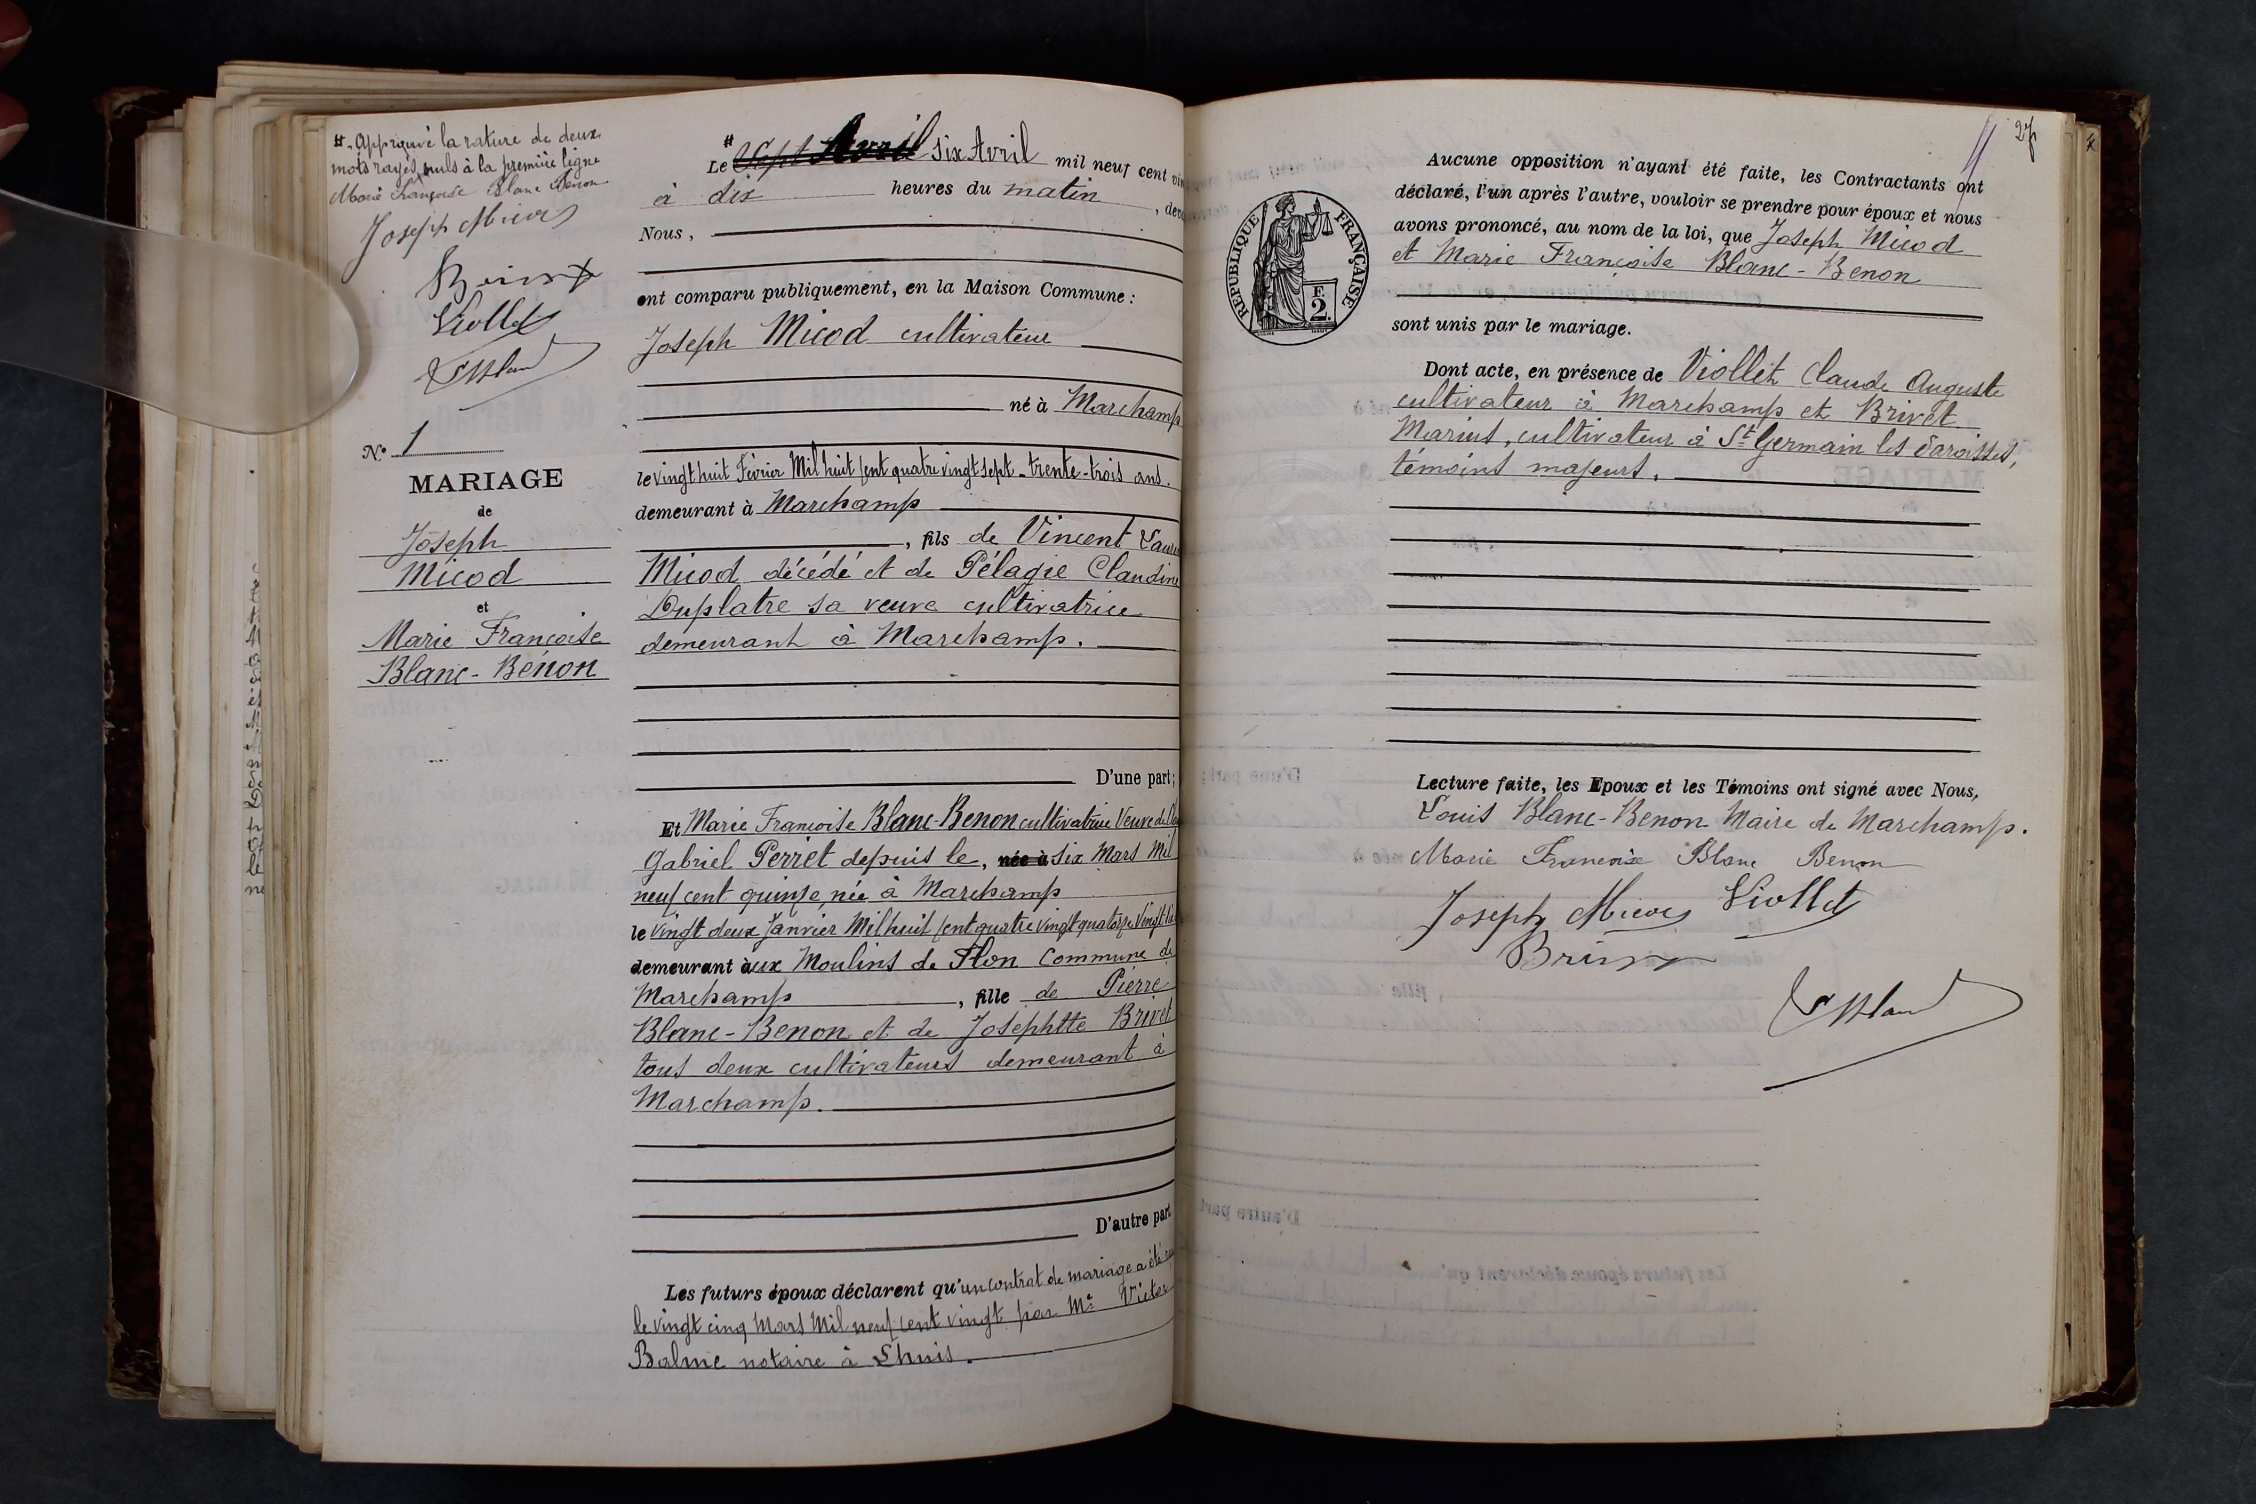 #. Approuvé la rature de deux
mots rayés nuls à la première ligne
Marie Françoise Blanc Benon
Joseph Micod
Brivet
Viollet
N° 1
MARIAGE
de
Joseph
Micod
et
Marie Françoise
Blanc-Benon
#
Le Sept Avril Six Avril mil neuf cent
à dix heures du matin
Nous,
ont comparu publiquement, en la Maison Commune :
Joseph Micod cultivateur
né à Marchamp
le vingt huit Février Mil huit cent quatre vingt sept - trente-trois ans.
demeurant à Marchamp
, fils de Vincent
Micod décédé et de Pélagie Claudine
Duplatre sa veuve cultivatrice
demeurant à Marchamp.
D'une part;
Et Marie Françoise Blanc-Benon cultivatrice Veuve de
Gabriel Perret depuis le, née à six Mars Mil
neuf cent quinze, née à Marchamp
le vingt deux Janvier Mil huit cent quatre vingt quatorze
demeurant aux Moulins de Flon Commune de
Marchamp, fille de Pierre
Blanc-Benon et de Josephtte Brivet
tous deux cultivateurs demeurant à
Marchamp.
D'autre part
Les futurs époux déclarent qu'un contrat de mariage a été
le vingt cinq Mars Mil neuf cent vingt par Me Victor
Balme notaire à Lhuis.
27
RÉPUBLIQUE FRANÇAISE
F.
2.
Aucune opposition n'ayant été faite, les Contractants ont
déclaré, l'un après l'autre, vouloir se prendre pour époux et nous
avons prononcé, au nom de la loi, que Joseph Micod
et Marie Françoise Blanc-Benon
sont unis par le mariage.
Dont acte, en présence de Viollet Claude Auguste
cultivateur à Marchamp et Brivet
Marius, cultivateur à St Germain les Paroisses,
témoins majeurs.
Lecture faite, les Epoux et les Témoins ont signé avec Nous,
Louis Blanc-Benon Maire de Marchamp.
Marie Françoise Blanc Benon
Joseph Micod Viollet
Brivet